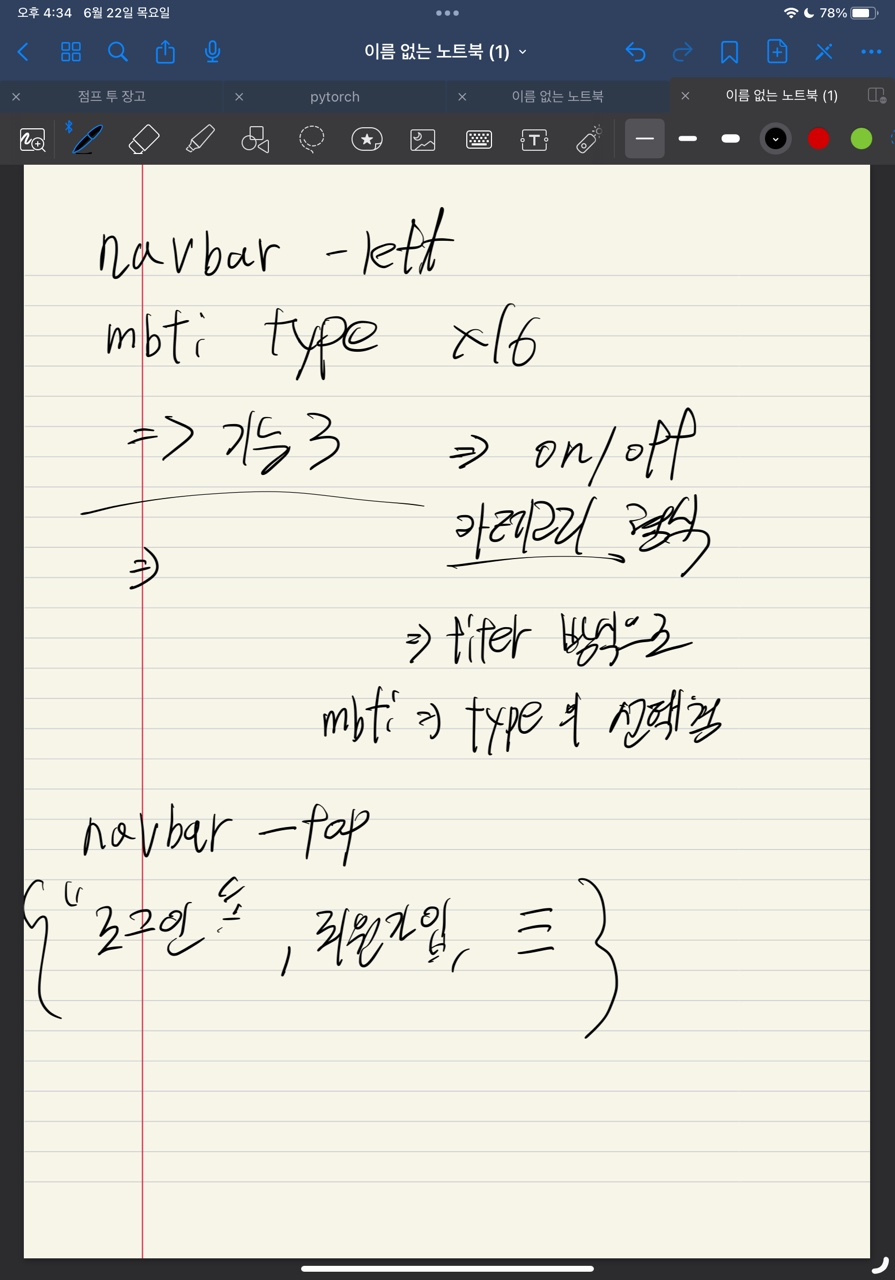 오후 4:34 6월 22일 목요일
78%
이름 없는 노트북 (1)
점프 투 장고
pytorch
이름 없는 노트북
이름 없는 노트북 (1)
navbar - left
mbti type x16
=> 기능 3 => on/off
카테고리 형식
=>
=> filter 방식으로
mbti => type의 선택
navbar - top
{ "로그인
, 회원가입, ≡ }